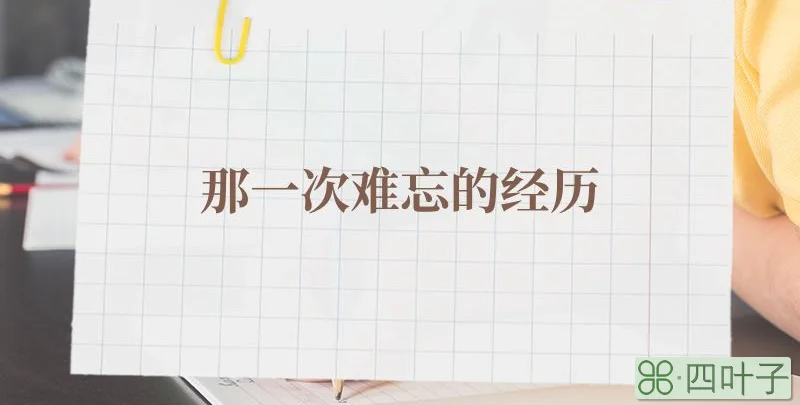 那一次难忘的经历
四叶子